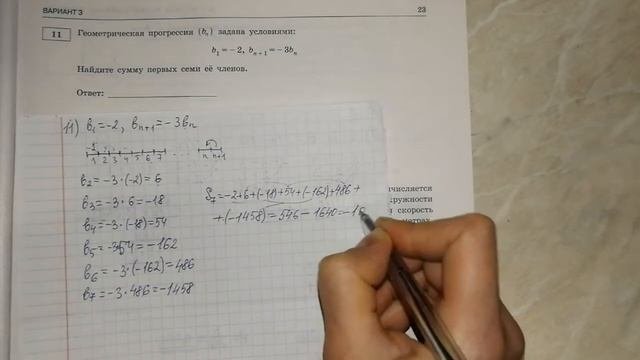 ВАРИАНТ 3
23
11
Геометрическая прогрессия (bₙ) задана условиями:
b₁ = – 2, bₙ₊₁ = – 3bₙ
Найдите сумму первых семи её членов.
Ответ:
11) b₁=-2, bₙ₊₁=-3bₙ
-2
1 2 3 4 5 6 7 ... n n+1
b₂=-3·(-2)=6
b₃=-3·6=-18
b₄=-3·(-18)=54
b₅=-3·54=-162
b₆=-3·(-162)=486
b₇=-3·486=-1458
S₇=-2+6+(-18)+54+(-162)+486+
+(-1458)=546-1640=-10
ичисляется
кружности
скорость
метрах